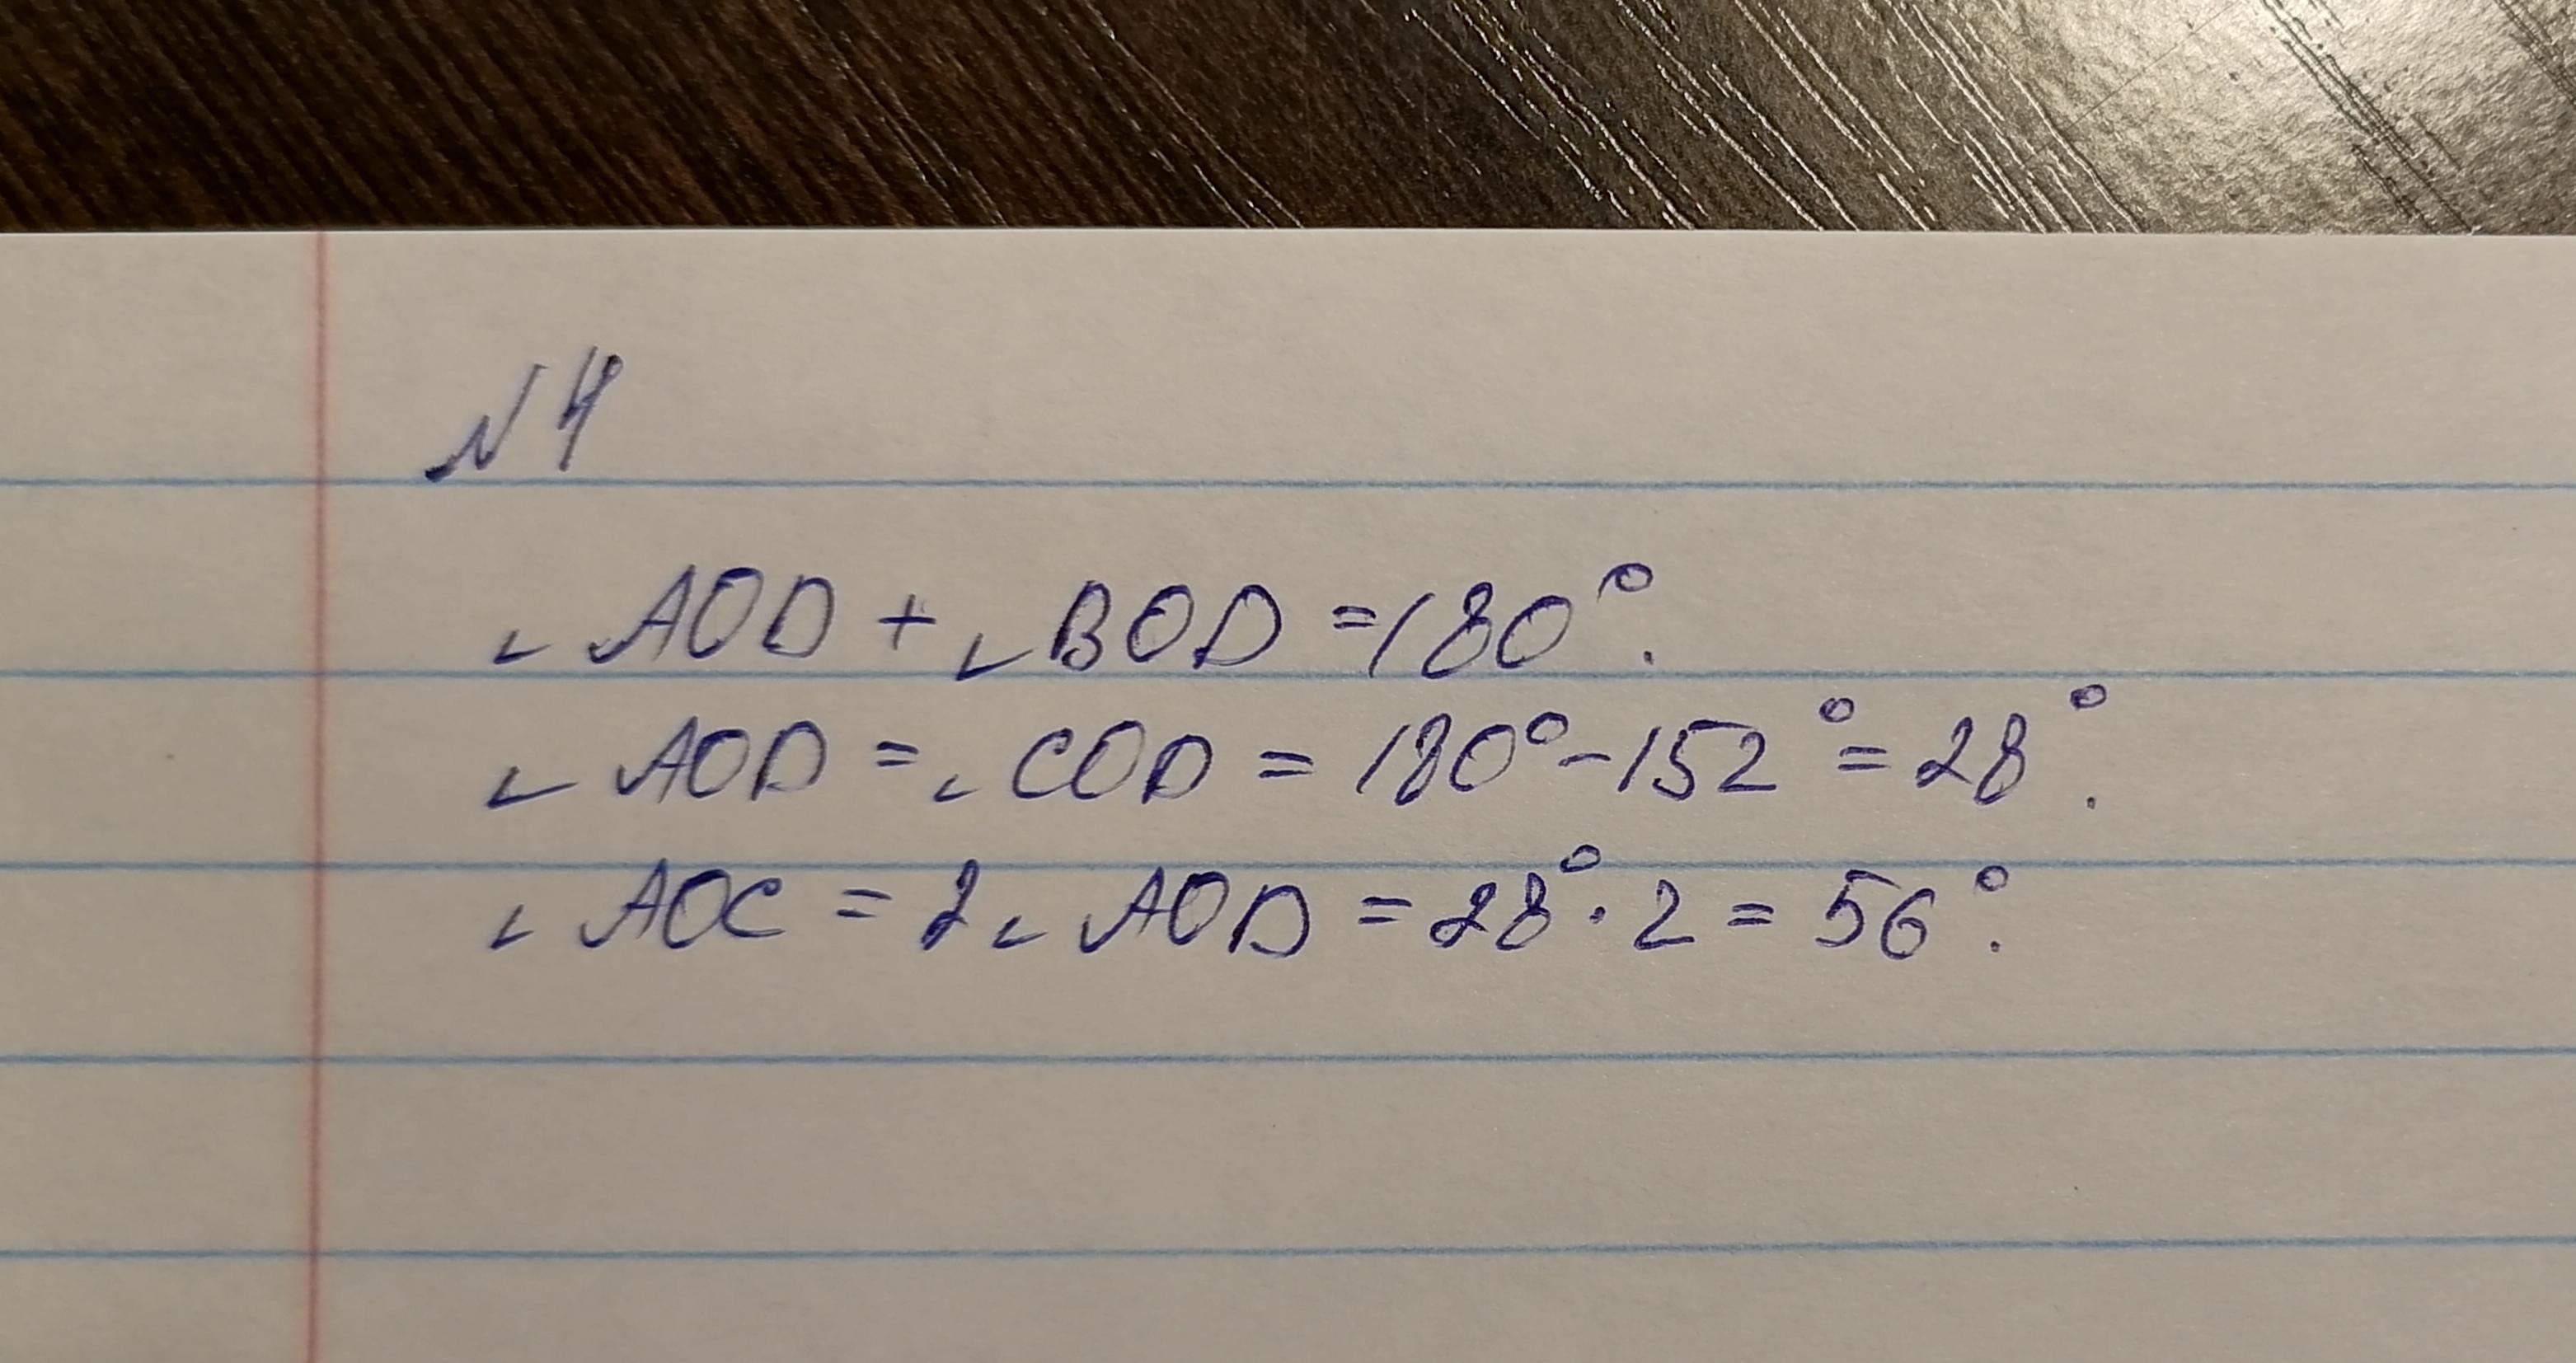 N4
∠AOD + ∠BOD = 180°.
∠AOD = ∠COD = 180° - 152° = 28°.
∠AOC = 2∠AOD = 28° · 2 = 56°.